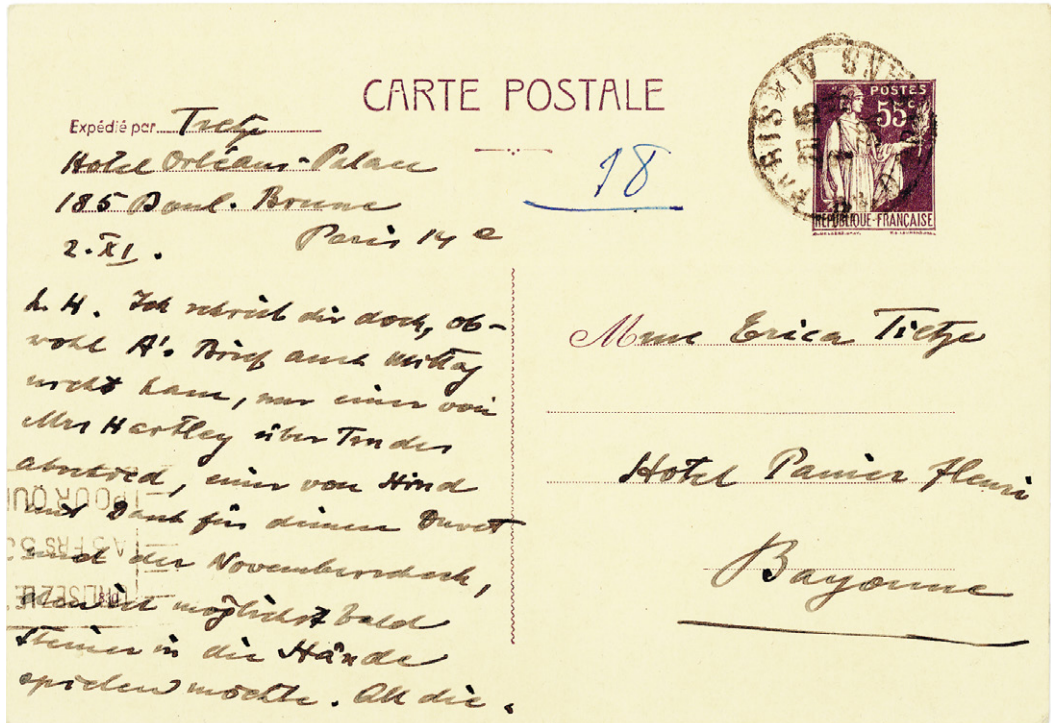 CARTE POSTALE
Expédié par Tietze
Hotel Orléans-Palace
185 Boul. Brune
Paris 14e
2. XI.
18
POSTES
55c
REPUBLIQUE-FRANÇAISE
PARIS XIV
L. H. Ich schreib dir doch, ob-
wohl A's Brief auch Mittag
nicht kam, nur einer von
Mrs Hartley über
abschied, einer von Hind
mit Dank für deinen
und der
möglichst bald
Steiner in die Hände
spielen möchte. All die
Mme Erica Tietze
Hotel Panier fleuri
Bayonne